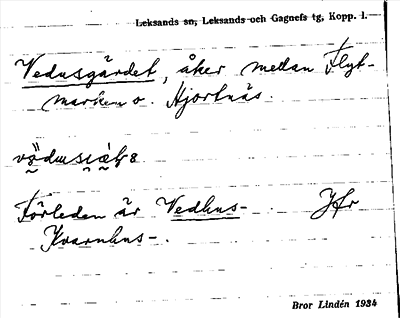 Leksands sn, Leksands och Gagnefs tg, Kopp. l.
Vedusgärdet, åker mellan Flyt-
marken o. Hjortnäs.
Förleden är Vedhus- Jfr
Kvarnhus-.
Bror Lindén 1934